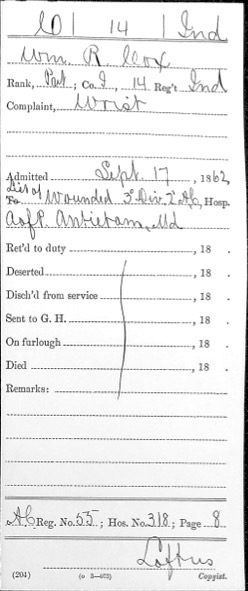 C | 14 | Ind
Wm. R. Cox
Rank, Pvt; Co. I, 14 Reg't Ind
Complaint, Wrist
Admitted Sept. 17, 1862,
List of
To Wounded 3" Div. 2" A.C., Hosp.
A of P. Antietam, Md
Ret'd to duty , 18 .
Deserted , 18 .
Disch'd from service , 18 .
Sent to G. H. , 18 .
On furlough , 18 .
Died , 18 .
Remarks:
A.C. Reg. No. 55; Hos. No. 318; Page 8
Loftus
(204) (o 3—463) Copyist.